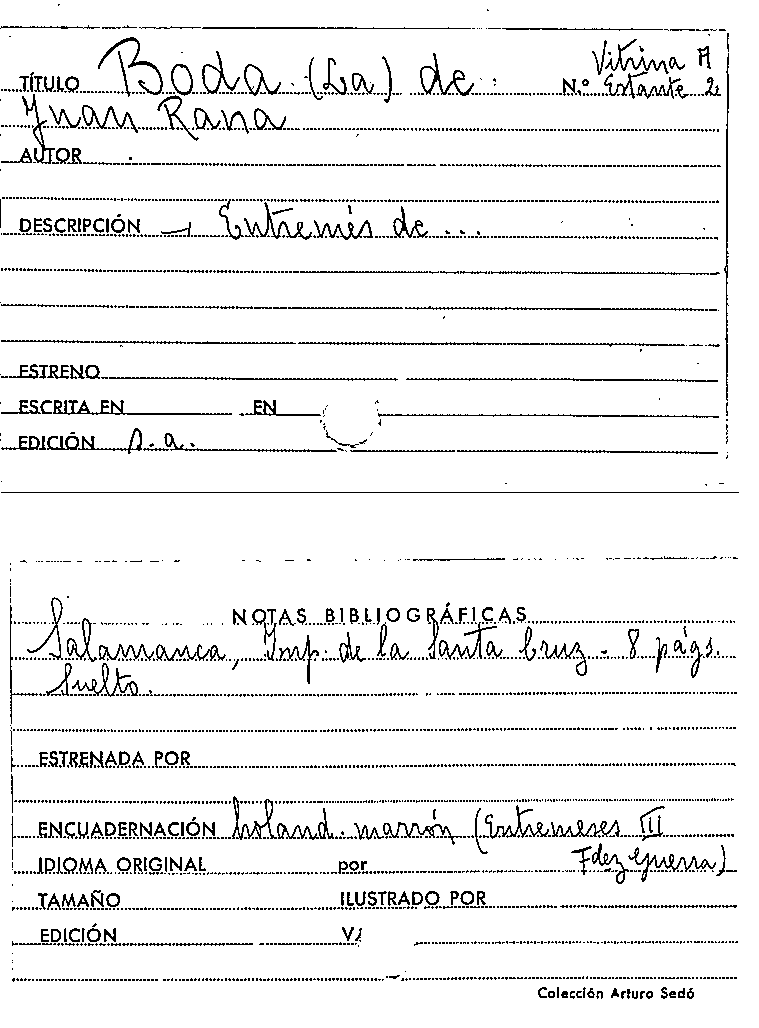 Vitrina A
TÍTULO Boda (La) de N.º Estante 2
Juan Rana
AUTOR
DESCRIPCIÓN → Entremés de...
ESTRENO
ESCRITA EN EN
EDICIÓN s.a.
NOTAS BIBLIOGRÁFICAS
Salamanca, Imp. de la Santa Cruz - 8 págs.
Suelto.
ESTRENADA POR
ENCUADERNACIÓN holand. marrón (Entremeses III
IDIOMA ORIGINAL por Fdez Guerra)
TAMAÑO ILUSTRADO POR
EDICIÓN
Colección Arturo Sedó